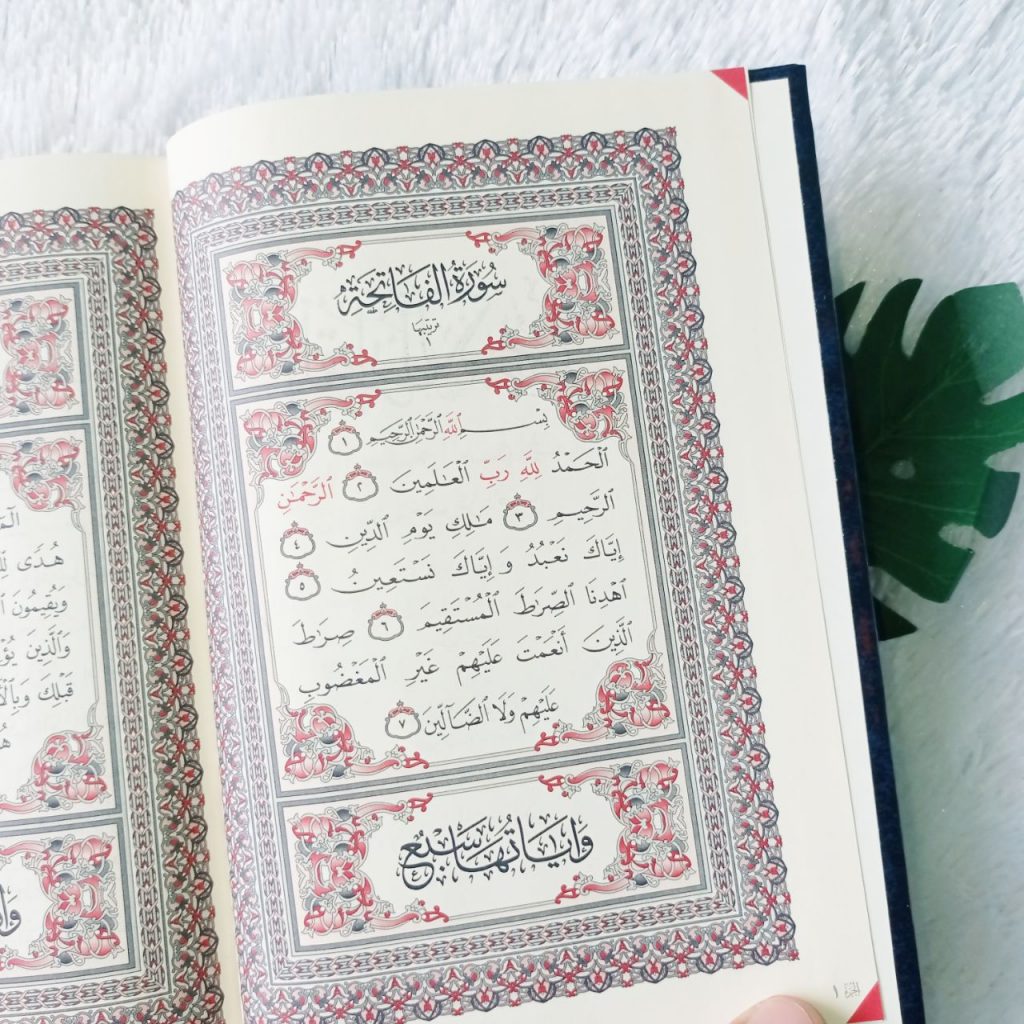 سُورَةُ الفَاتِحَةِ
تَرْتِيبُهَا
١
بِسْمِ ٱللَّهِ ٱلرَّحْمَٰنِ ٱلرَّحِيمِ ١
ٱلْحَمْدُ لِلَّهِ رَبِّ ٱلْعَٰلَمِينَ ٢ ٱلرَّحْمَٰنِ
ٱلرَّحِيمِ ٣ مَٰلِكِ يَوْمِ ٱلدِّينِ ٤
إِيَّاكَ نَعْبُدُ وَإِيَّاكَ نَسْتَعِينُ ٥
ٱهْدِنَا ٱلصِّرَٰطَ ٱلْمُسْتَقِيمَ ٦ صِرَٰطَ
ٱلَّذِينَ أَنْعَمْتَ عَلَيْهِمْ غَيْرِ ٱلْمَغْضُوبِ
عَلَيْهِمْ وَلَا ٱلضَّآلِّينَ ٧
وَاٰيَاتُهَا سَبْعٌ
الجزء ١
هُدًى
وَيُقِيمُونَ
وَٱلَّذِينَ
قَبْلِكَ